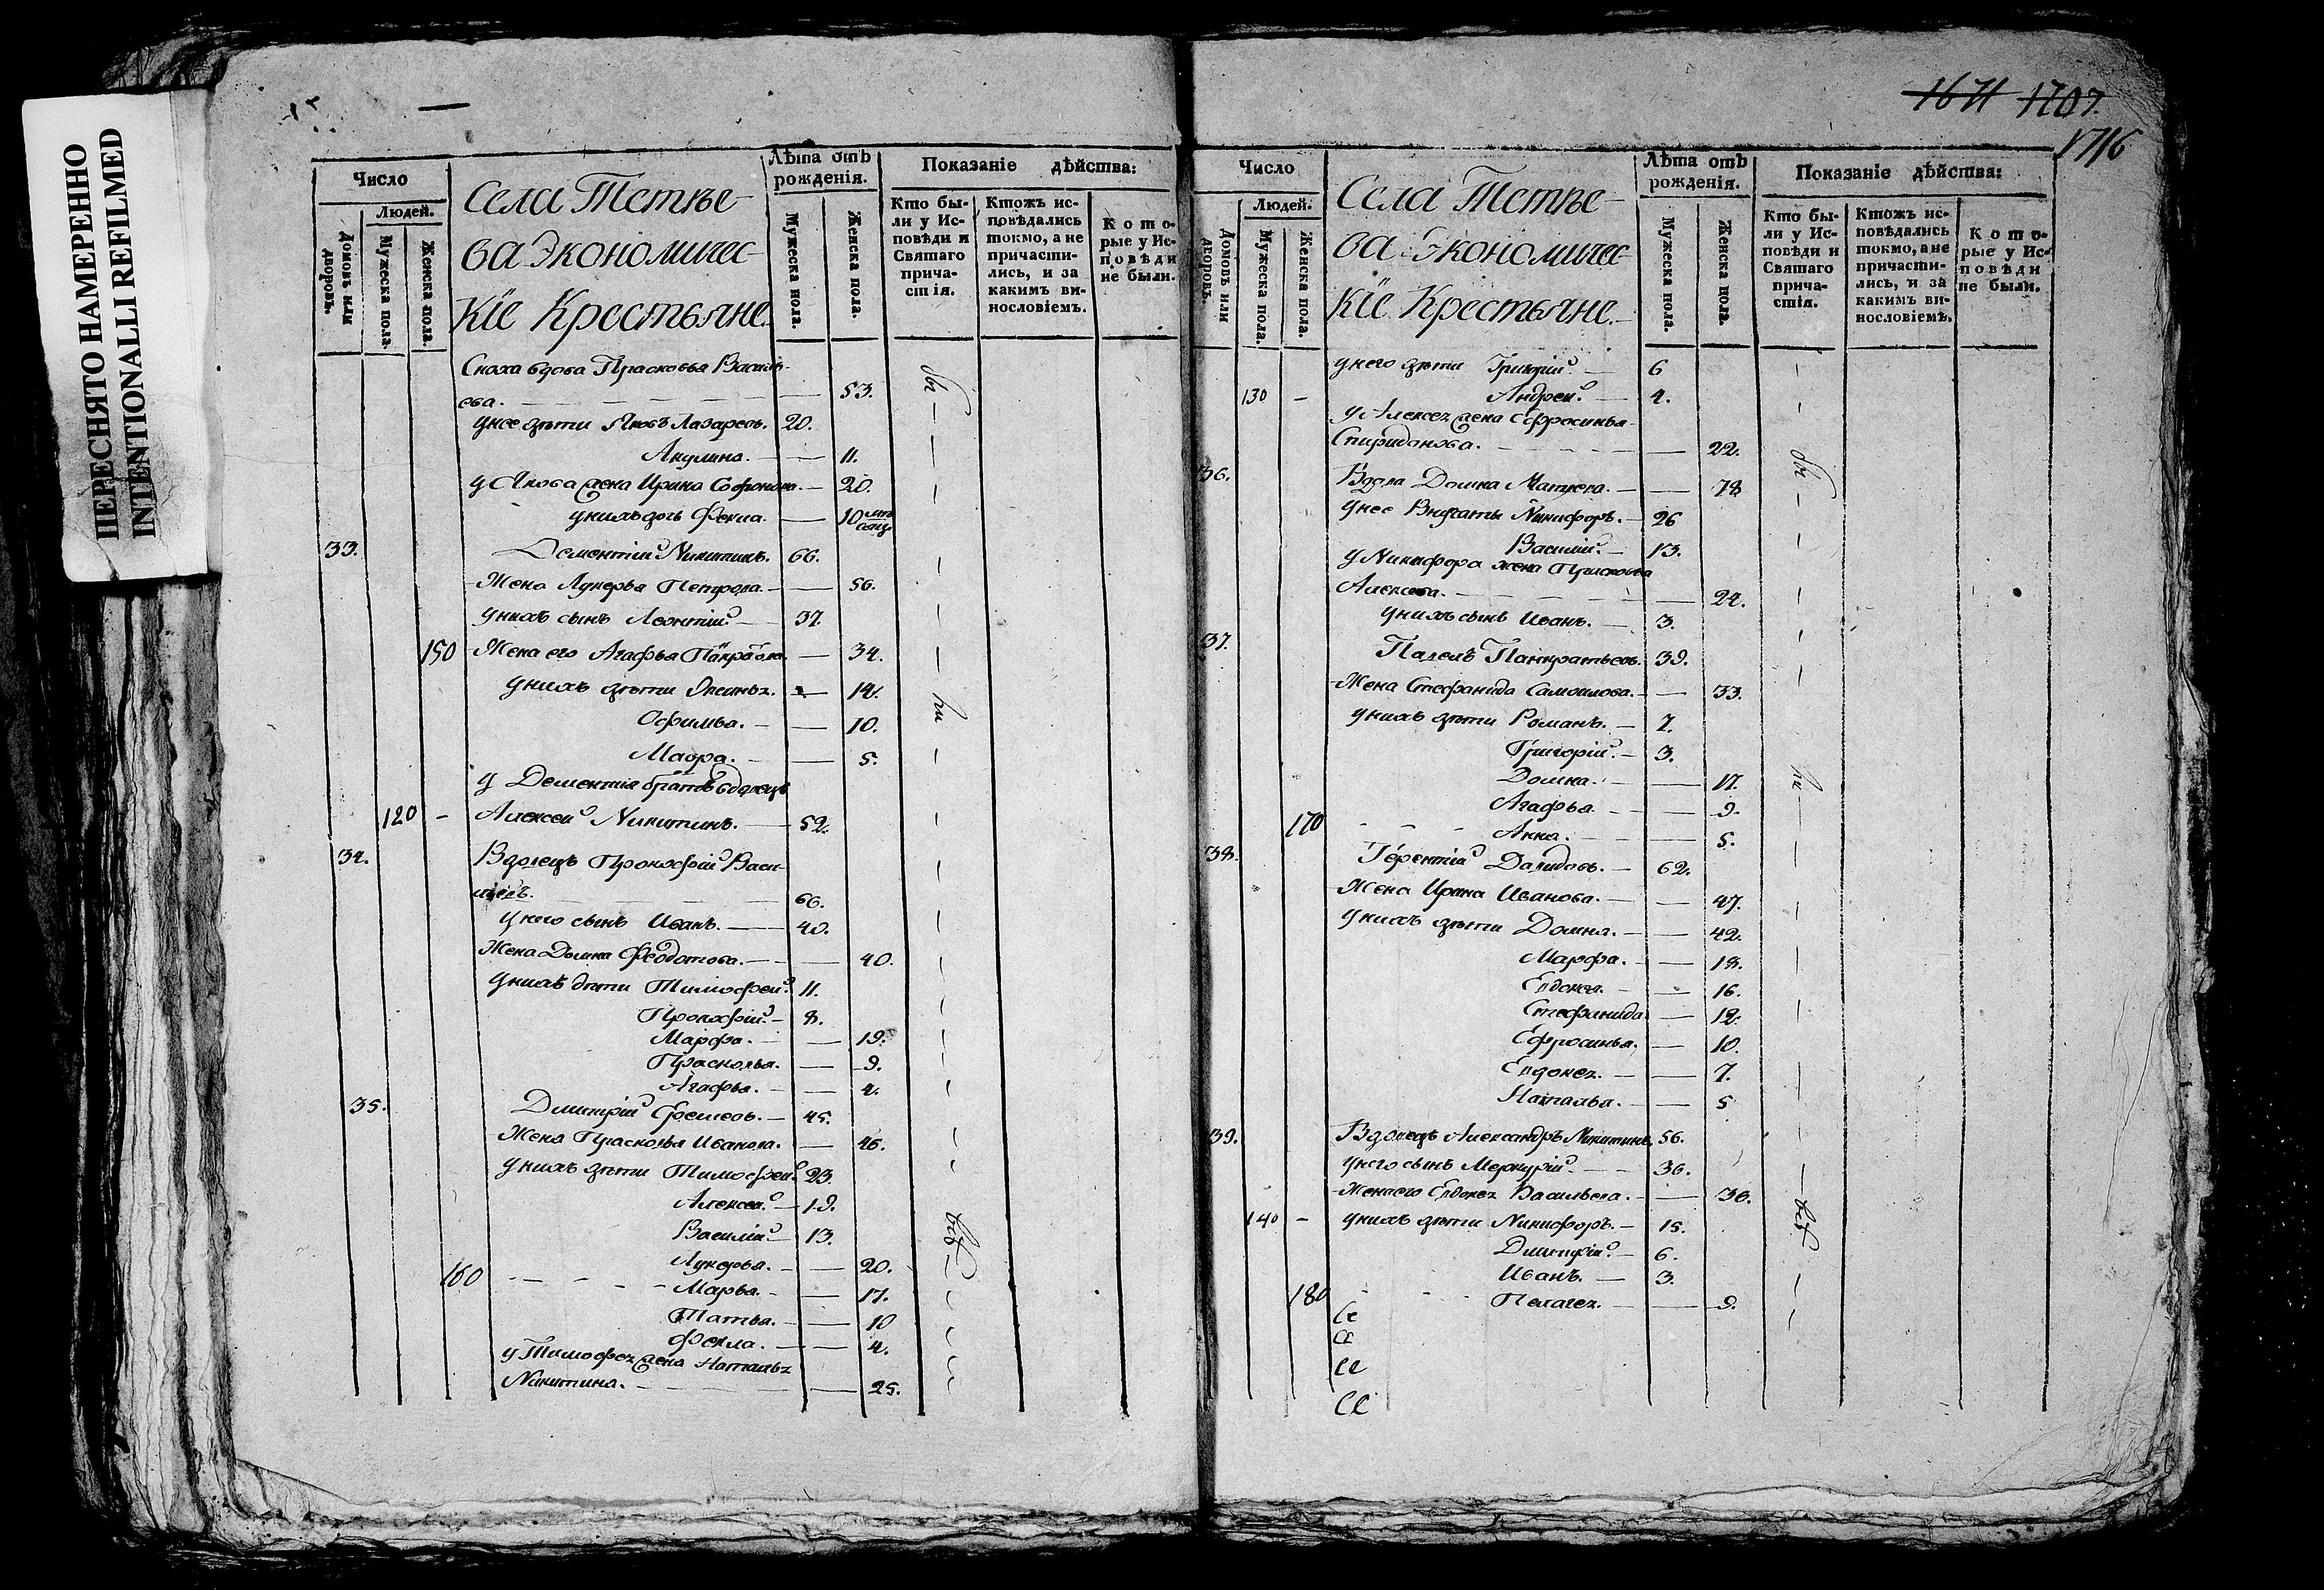 ПЕРЕСНЯТО НАМЕРЕННО
INTENTIONALLI REFILMED
1671 1707.
1716
Число
Людей.
Домовъ или дворовъ.
Мужеска пола.
Женска пола.
Села Тетѣе-
ва Экономичес-
кіе Крестьяне.
Лѣта отъ рожденія.
Мужеска пола.
Женска пола.
Показаніе дѣйства:
Кто бы-
ли у Ис-
повѣди и
Святаго
прича-
стія.
Ктожъ ис-
повѣдались
токмо, а не
причасти-
лись, и за
какимъ ви-
нословіемъ.
Кото-
рые у Ис-
повѣди
не были.
Сноха вдова Прасковья Василь-
ева. 53. бы
у нее дѣти Яковъ Лазаревъ. 20.
Акулина. 11.
у Якова жена Ирина Софонова. 20.
у нихъ дочь Фекла. 10
33. Дементій Никитинъ. 66.
Жена Лукерья Петрова. 56.
у нихъ сынъ Леонтій. 37.
150 Жена его Агафья Панкратова. 34.
у нихъ дѣти 14. ли
Офимья. 10.
Мавра. 5.
у Дементія братъ вдовецъ
120 - Алексей Никитинъ. 52.
34. Вдовецъ Прокофій Васи-
льевъ. 66.
у него сынъ Иванъ. 40.
Жена Домна Феодотова. 40.
у нихъ дѣти Тимофей. 11.
Прокофій. 8.
Марфа. 19.
Прасковья. 9.
Агафья. 4.
35. Дмитрій 45.
Жена Прасковья Иванова. 46.
у нихъ дѣти Тимофей. 23.
Алексей. 19.
Василій. 13. всѣ
Лукерья. 20.
160 Марья. 17.
Татья. 10
Фекла. 4.
у Тимофея жена Наталья
Никитина. 25.
Число
Людей.
Домовъ или дворовъ.
Мужеска пола.
Женска пола.
Села Тетѣе-
ва Экономичес-
кіе Крестьяне.
Лѣта отъ рожденія.
Мужеска пола.
Женска пола.
Показаніе дѣйства:
Кто бы-
ли у Ис-
повѣди и
Святаго
прича-
стія.
Ктожъ ис-
повѣдались
токмо, а не
причасти-
лись, и за
какимъ ви-
нословіемъ.
Кото-
рые у Ис-
повѣди
не были.
у него дѣти Григорій. 6
130 - Андрей. 4.
у Алексея жена Ефросинья
Спиридонова. 22. бы
36. Вдова Домна 78
у нее Внучаты Никифоръ. 26
Василій. 13.
у Никифора жена Прасковья
24.
у нихъ сынъ Иванъ. 3.
37. Павелъ Панкратьевъ. 39.
Жена Стефанида Самоилова. 33.
у нихъ дѣти Романъ. 7.
Григорій. 3.
Домна. 17. ли
Агафья. 9.
170 Анна. 5.
38. Терентій Давидовъ. 62.
Жена Ирина Иванова. 47.
у нихъ дѣти Домна. 42.
Марфа. 18.
Евдокея. 16.
Стефанида. 12.
Ефросинья. 10.
Евдокея. 7.
Наталья. 5
39. Вдовецъ Александръ Никитинъ. 56.
у него сынъ Меркурій. 36.
Жена его Евдокея Васильева. 36.
140 - у нихъ дѣти Никифоръ. 15. всѣ
Дмитрій. 6.
Иванъ. 3.
180 Пелагея. 9.